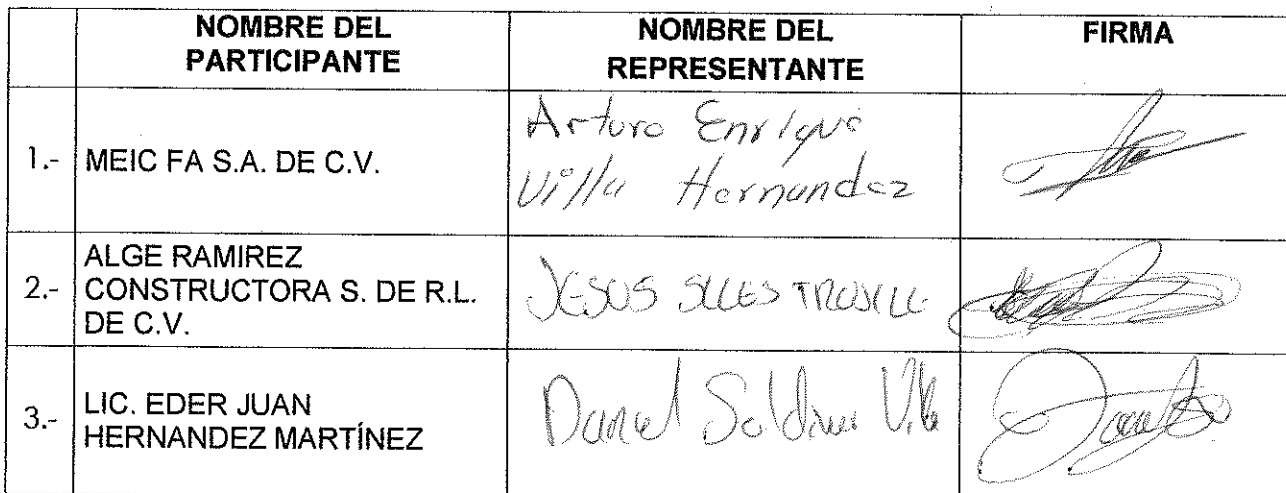 NOMBRE DEL PARTICIPANTE
NOMBRE DEL REPRESENTANTE
FIRMA
1.-
MEIC FA S.A. DE C.V.
Arturo Enrique
Villa Hernandez
2.-
ALGE RAMIREZ
CONSTRUCTORA S. DE R.L.
DE C.V.
JESUS
3.-
LIC. EDER JUAN
HERNANDEZ MARTÍNEZ
Daniel